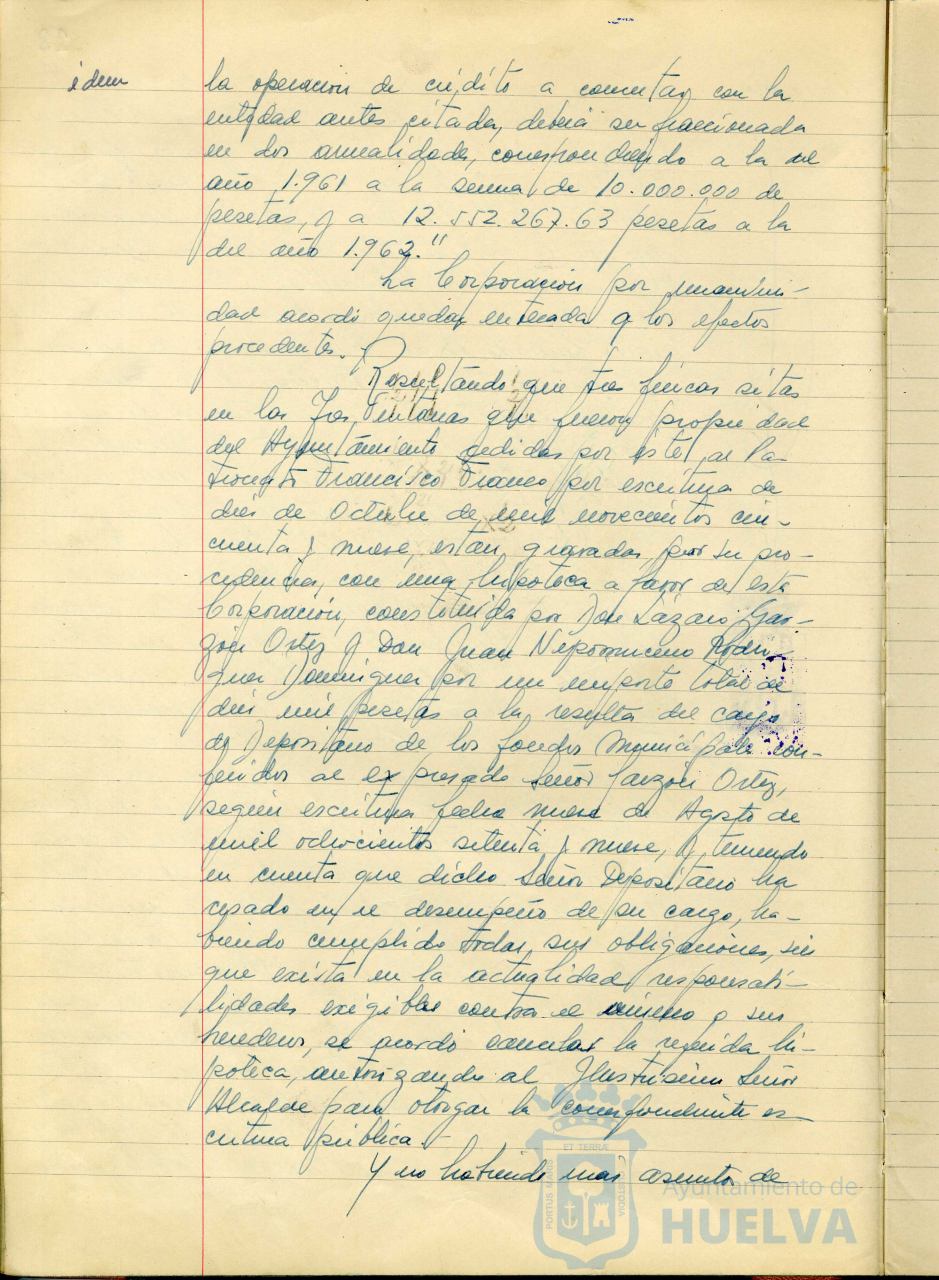 idem
la operacion de crédito a concertar con la
entidad antes citada, deberá ser fraccionada
en dos anualidades, correspondiendo a la del
año 1.961 a la suma de 10.000.000 de
pesetas, y a 12.552.267.63 pesetas a la
del año 1.962."
La Corporación por unanimi-
dad acordó quedar enterada a los efectos
procedentes.
Resultando que tres fincas sitas
en las Tres Ventanas que fueron propiedad
del Ayuntamiento cedidas por éste, al Pa-
tronato Francisco Franco por escritura de
diez de Octubre de mil novecientos cin-
cuenta y nueve, están gravadas, por su pro-
cedencia, con una hipoteca a favor de esta
Corporación, constituida por Don Lazaro Gar-
zón Ortiz y Don Juan Nepomuceno Rodri-
guez Dominguez por un importe total de
diez mil pesetas a la resulta del cargo
de Depositario de los fondos Municipales con-
feridos al expresado Señor Garzón Ortiz,
según escritura fecha nueve de Agosto de
mil ochocientos setenta y nueve, y, teniendo
en cuenta que dicho Señor Depositario ha
cesado en el desempeño de su cargo, ha-
biendo cumplido todas sus obligaciones, sin
que exista en la actualidad responsabi-
lidades exigibles contra el mismo o sus
herederos, se acordó cancelar la referida hi-
poteca, autorizando al Ilustrisimo Señor
Alcalde para otorgar la correspondiente es-
critura pública.-
Y no habiendo mas asuntos de
PORTUS MARIS
ET TERRÆ
CUSTODIA
Ayuntamiento de
HUELVA